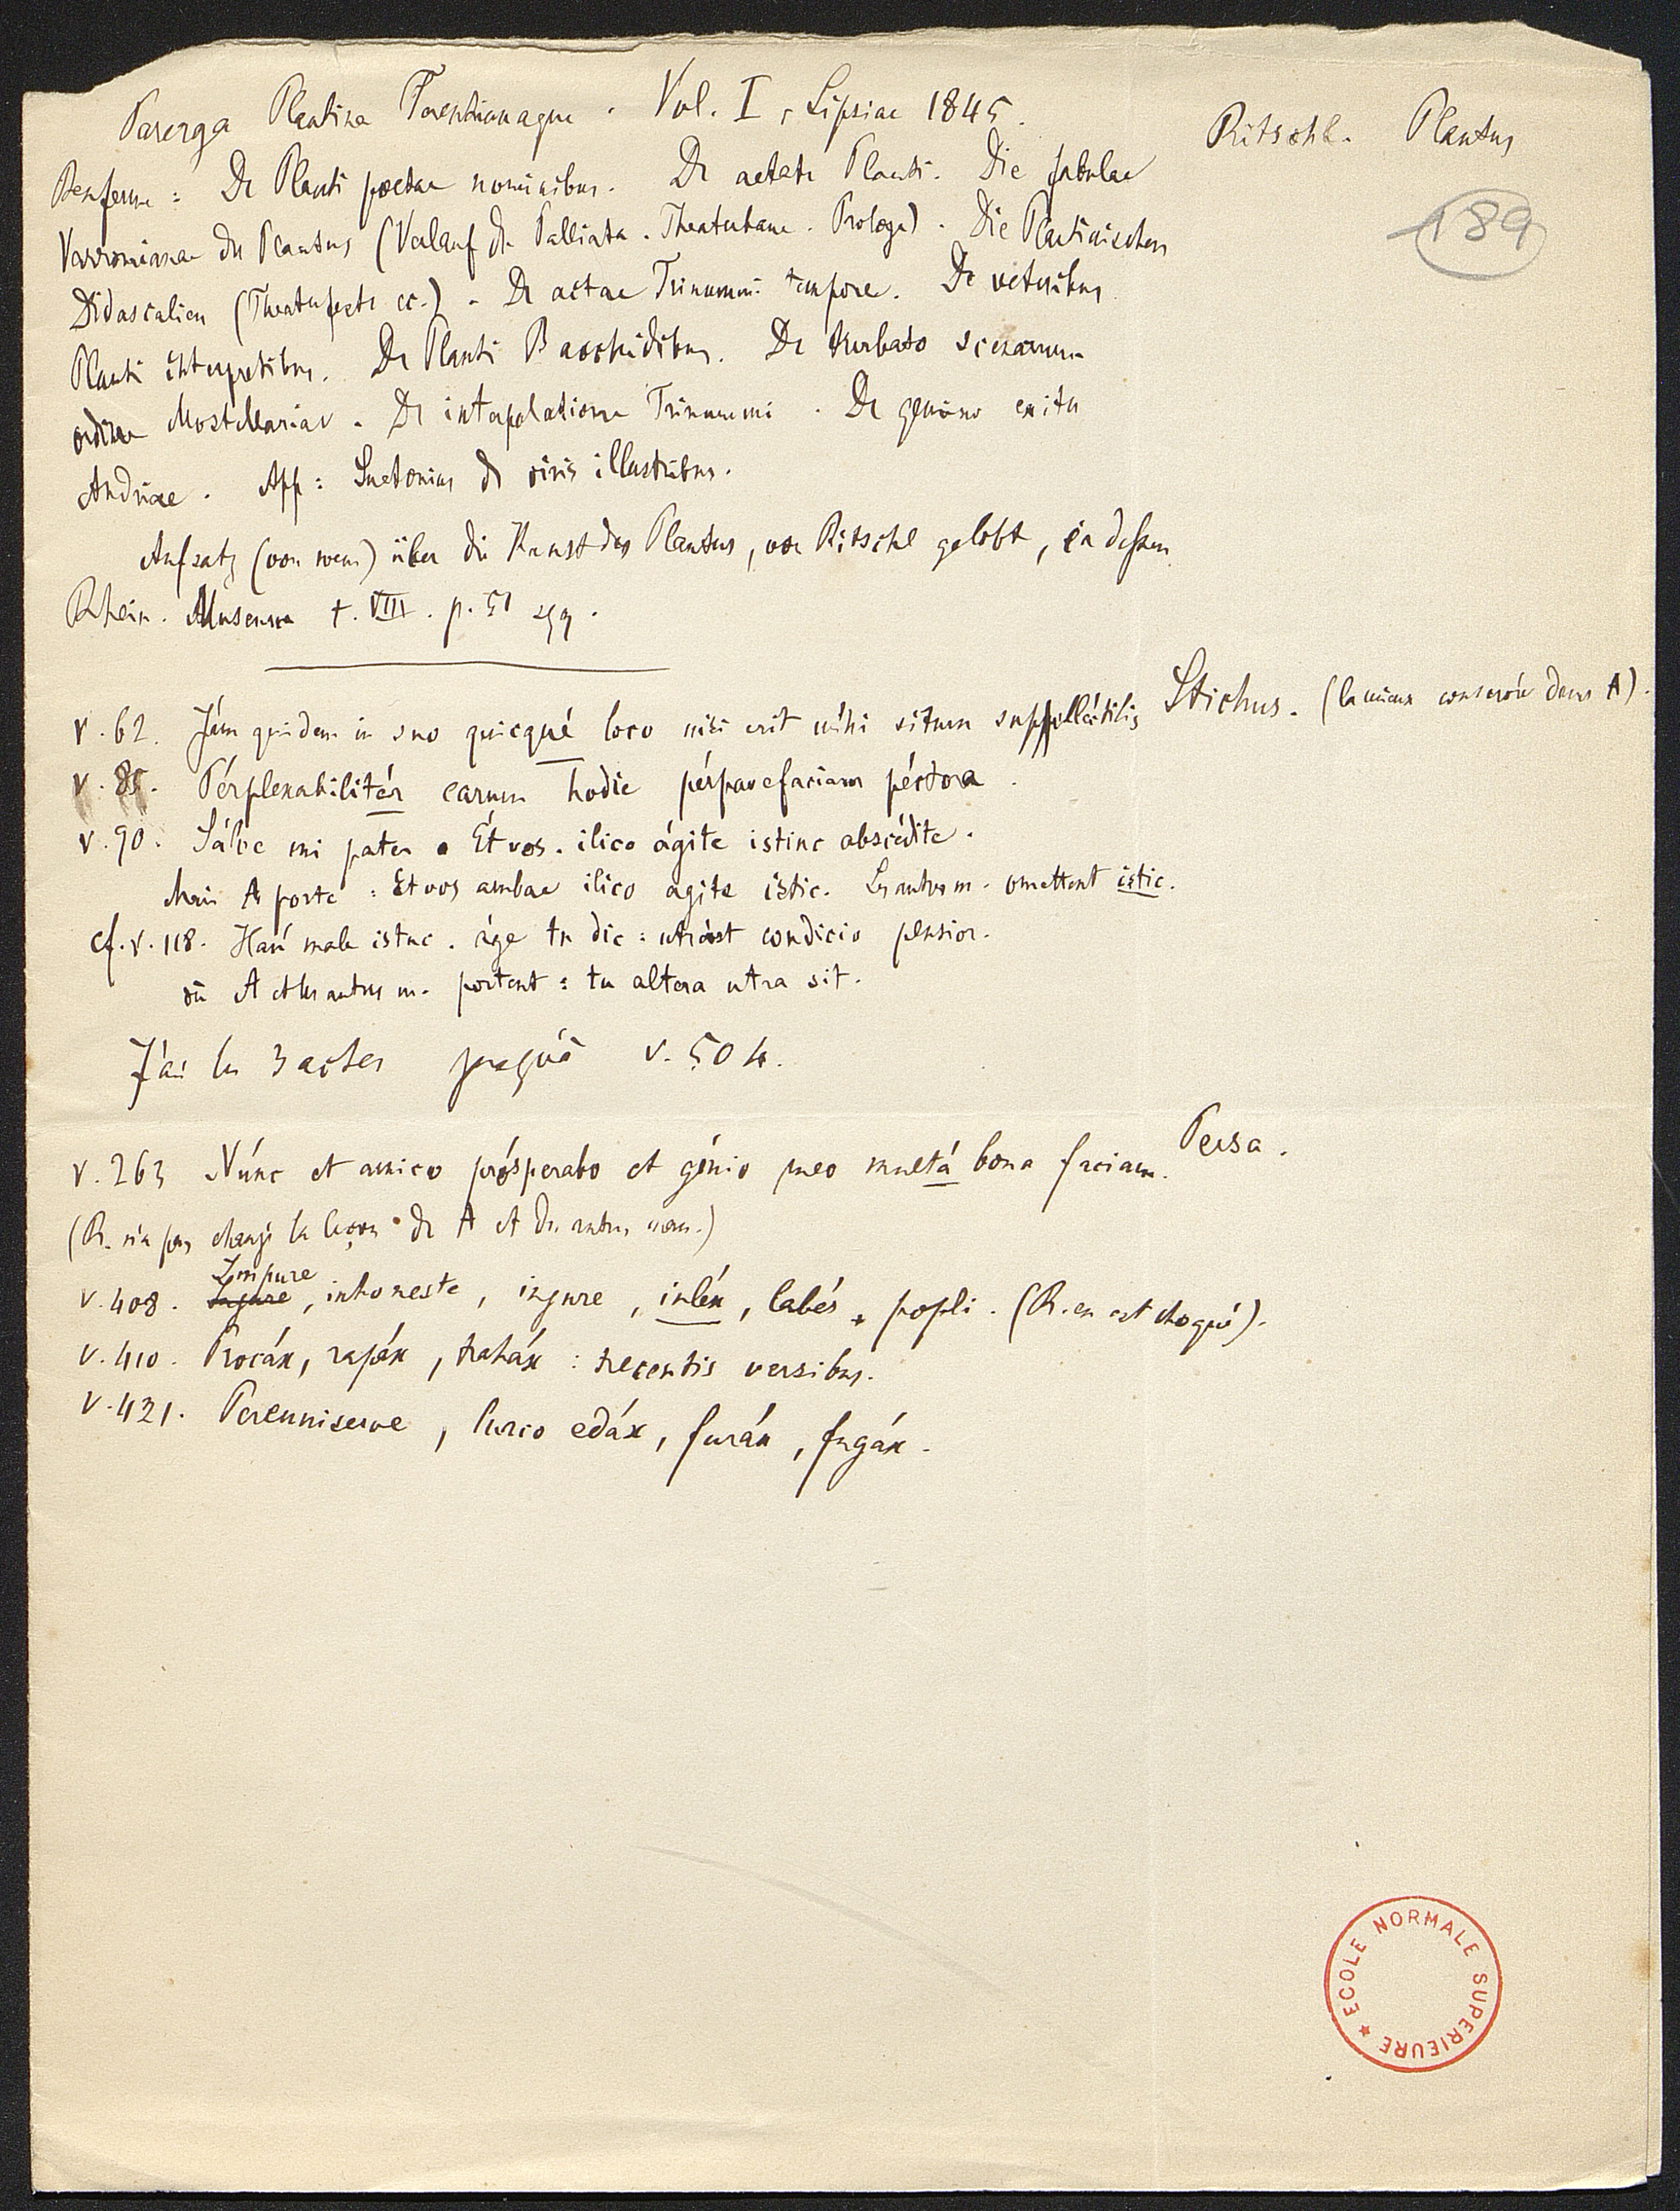 Ritschl. Plautus
189
Parerga Plautina Terentianaque. Vol. I, Lipsiae 1845.
Renferme : De Plauti poetae nominibus. De aetate Plauti. Die fabulae
Varronianae des Plautus (Verlauf der Palliata. Theaterbaue. Prologe). Die Plautinischen
Didascalien (Theaterfeste etc.). De actae Trinummi tempore. De veteribus
Plauti interpretibus. De Plauti Bacchidibus. De turbato scenarum
ordine Mostellariae. De interpolatione Trinummi. De gemino exitu
Andriae. App : Suetonius de viris illustribus.
Aufsatz (von wem) über die Kunst des Plautus, von Ritschl gelobt, in dessen
Rhein. Museum t. VIII. p. 51 sqq.
Stichus. (le mieux conservé dans A).
v. 62. Jám quidem in suo quicqué loco nisi erit míhi situm suppelléctilis
v. 85. Pérplexabilitér earum hodie pérpavefaciam péctora.
v. 90. Sálve mi pater. Ét vos. ilico ágite istinc abscédite.
Mais A porte : Et vos ambae ilico agite istic. Les autres m. omettent istic.
cf. v. 118. Haú male istuc. áge tu dic : utrást condicio pensior.
où A et les autres m. portent : tu altera utra sit.
J'ai lu 3 actes jusqu'à v. 504.
Persa.
v. 263 Núnc et amico prósperabo et génio meo multá bona faciam.
(R. n'a pas changé la leçon de A et des autres man.)
v. 408. Impure, inhoneste, injure, inléx, labés popli. (R. en est choqué).
v. 410. Procáx, rapáx, traháx : trecentis versibus.
v. 421. Perenniserve, lurco edáx, furáx, fugáx.
ECOLE NORMALE SUPERIEURE